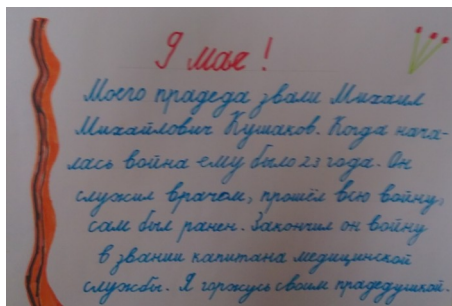 9 мае!
Моего прадеда звали Михаил
Михайлович Кушаков. Когда нача-
лась война ему было 23 года. Он
служил врачом, прошёл всю войну,
сам был ранен. Закончил он войну
в звании капитана медицинской
службы. Я горжусь своим прадедушкой.